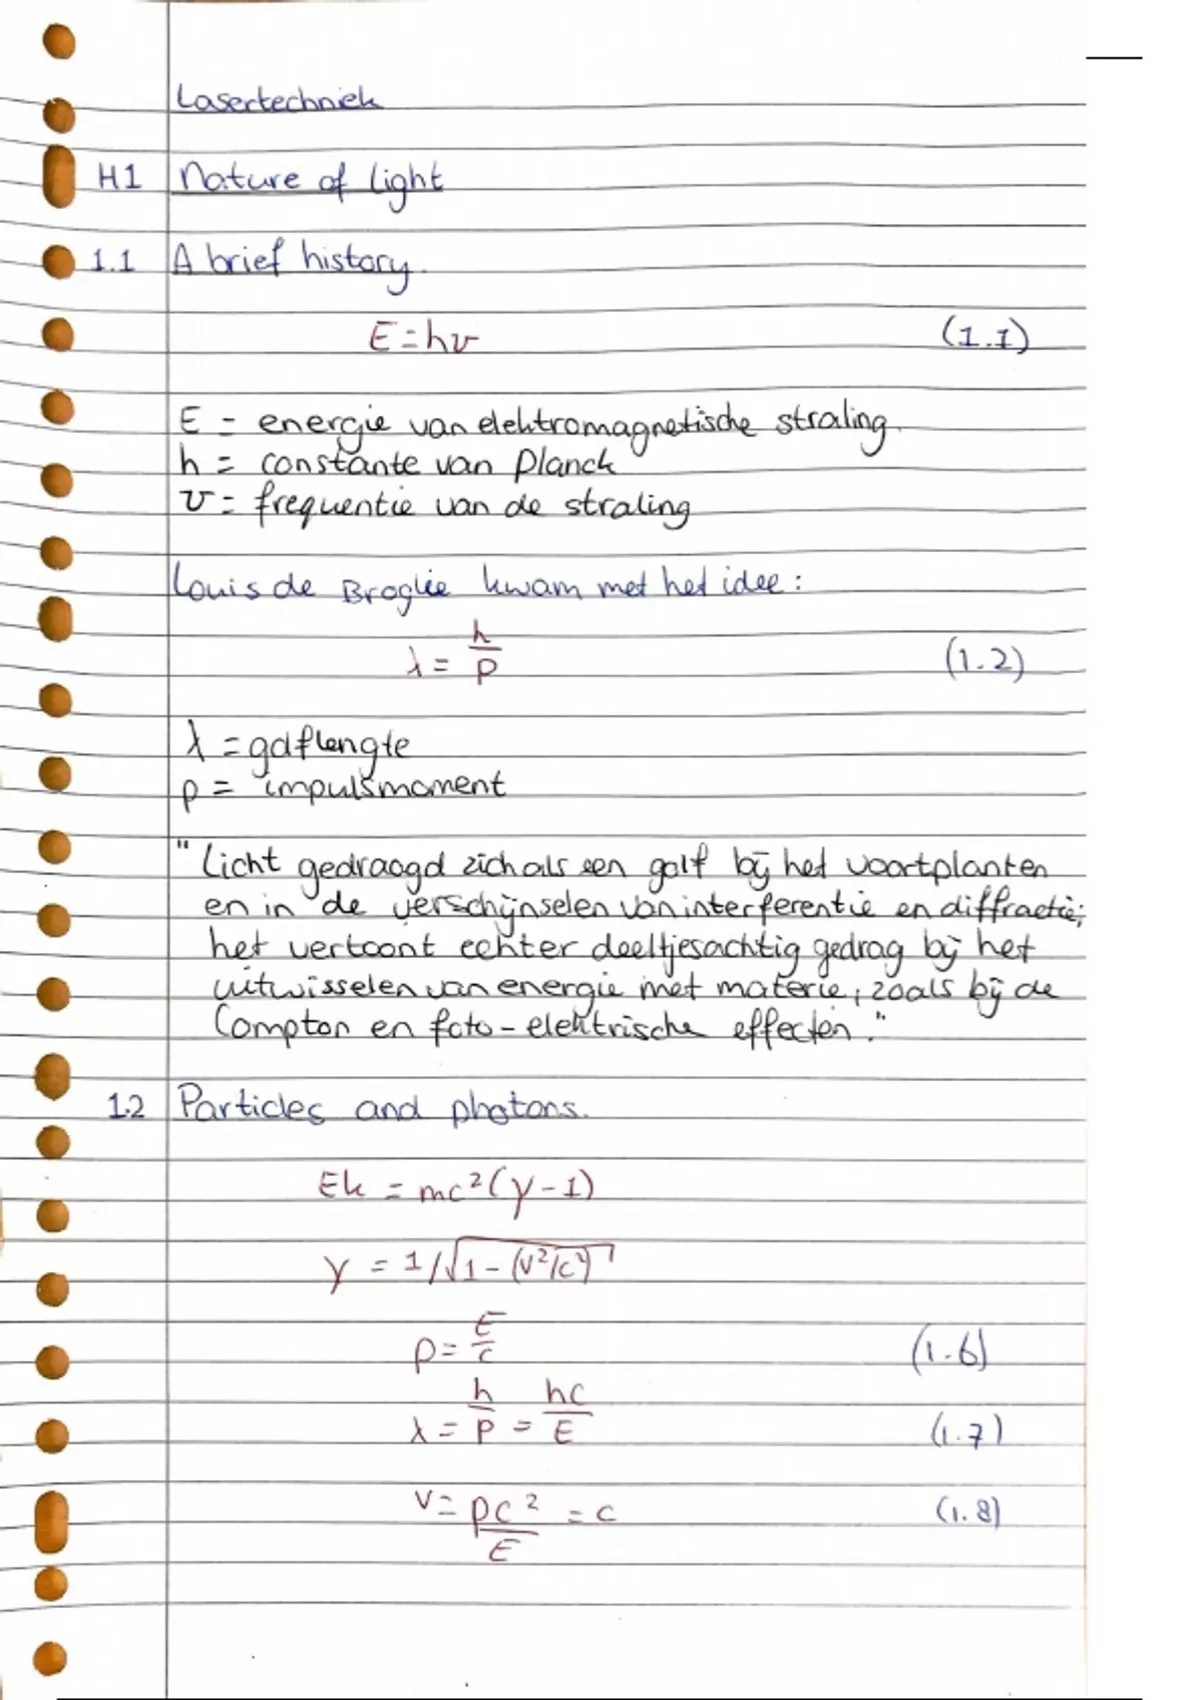 Lasertechniek
H1 Nature of Light
1.1 A brief history.
E = hν (1.1)
E = energie van elektromagnetische straling.
h = constante van Planck
ν = frequentie van de straling
Louis de Broglie kwam met het idee:
λ = h/p (1.2)
λ = golflengte
p = impulsmoment
"Licht gedraagd zich als een golf bij het voortplanten
en in de verschijnselen van interferentie en diffractie;
het vertoont echter deeltjesachtig gedrag bij het
uitwisselen van energie met materie, zoals bij de
Compton en foto-elektrische effecten."
1.2 Particles and photons.
Ek = mc²(γ-1)
γ = 1/√1-(v²/c²)
p = E/c (1.6)
λ = h/p = hc/E (1.7)
v = pc²/E = c (1.8)